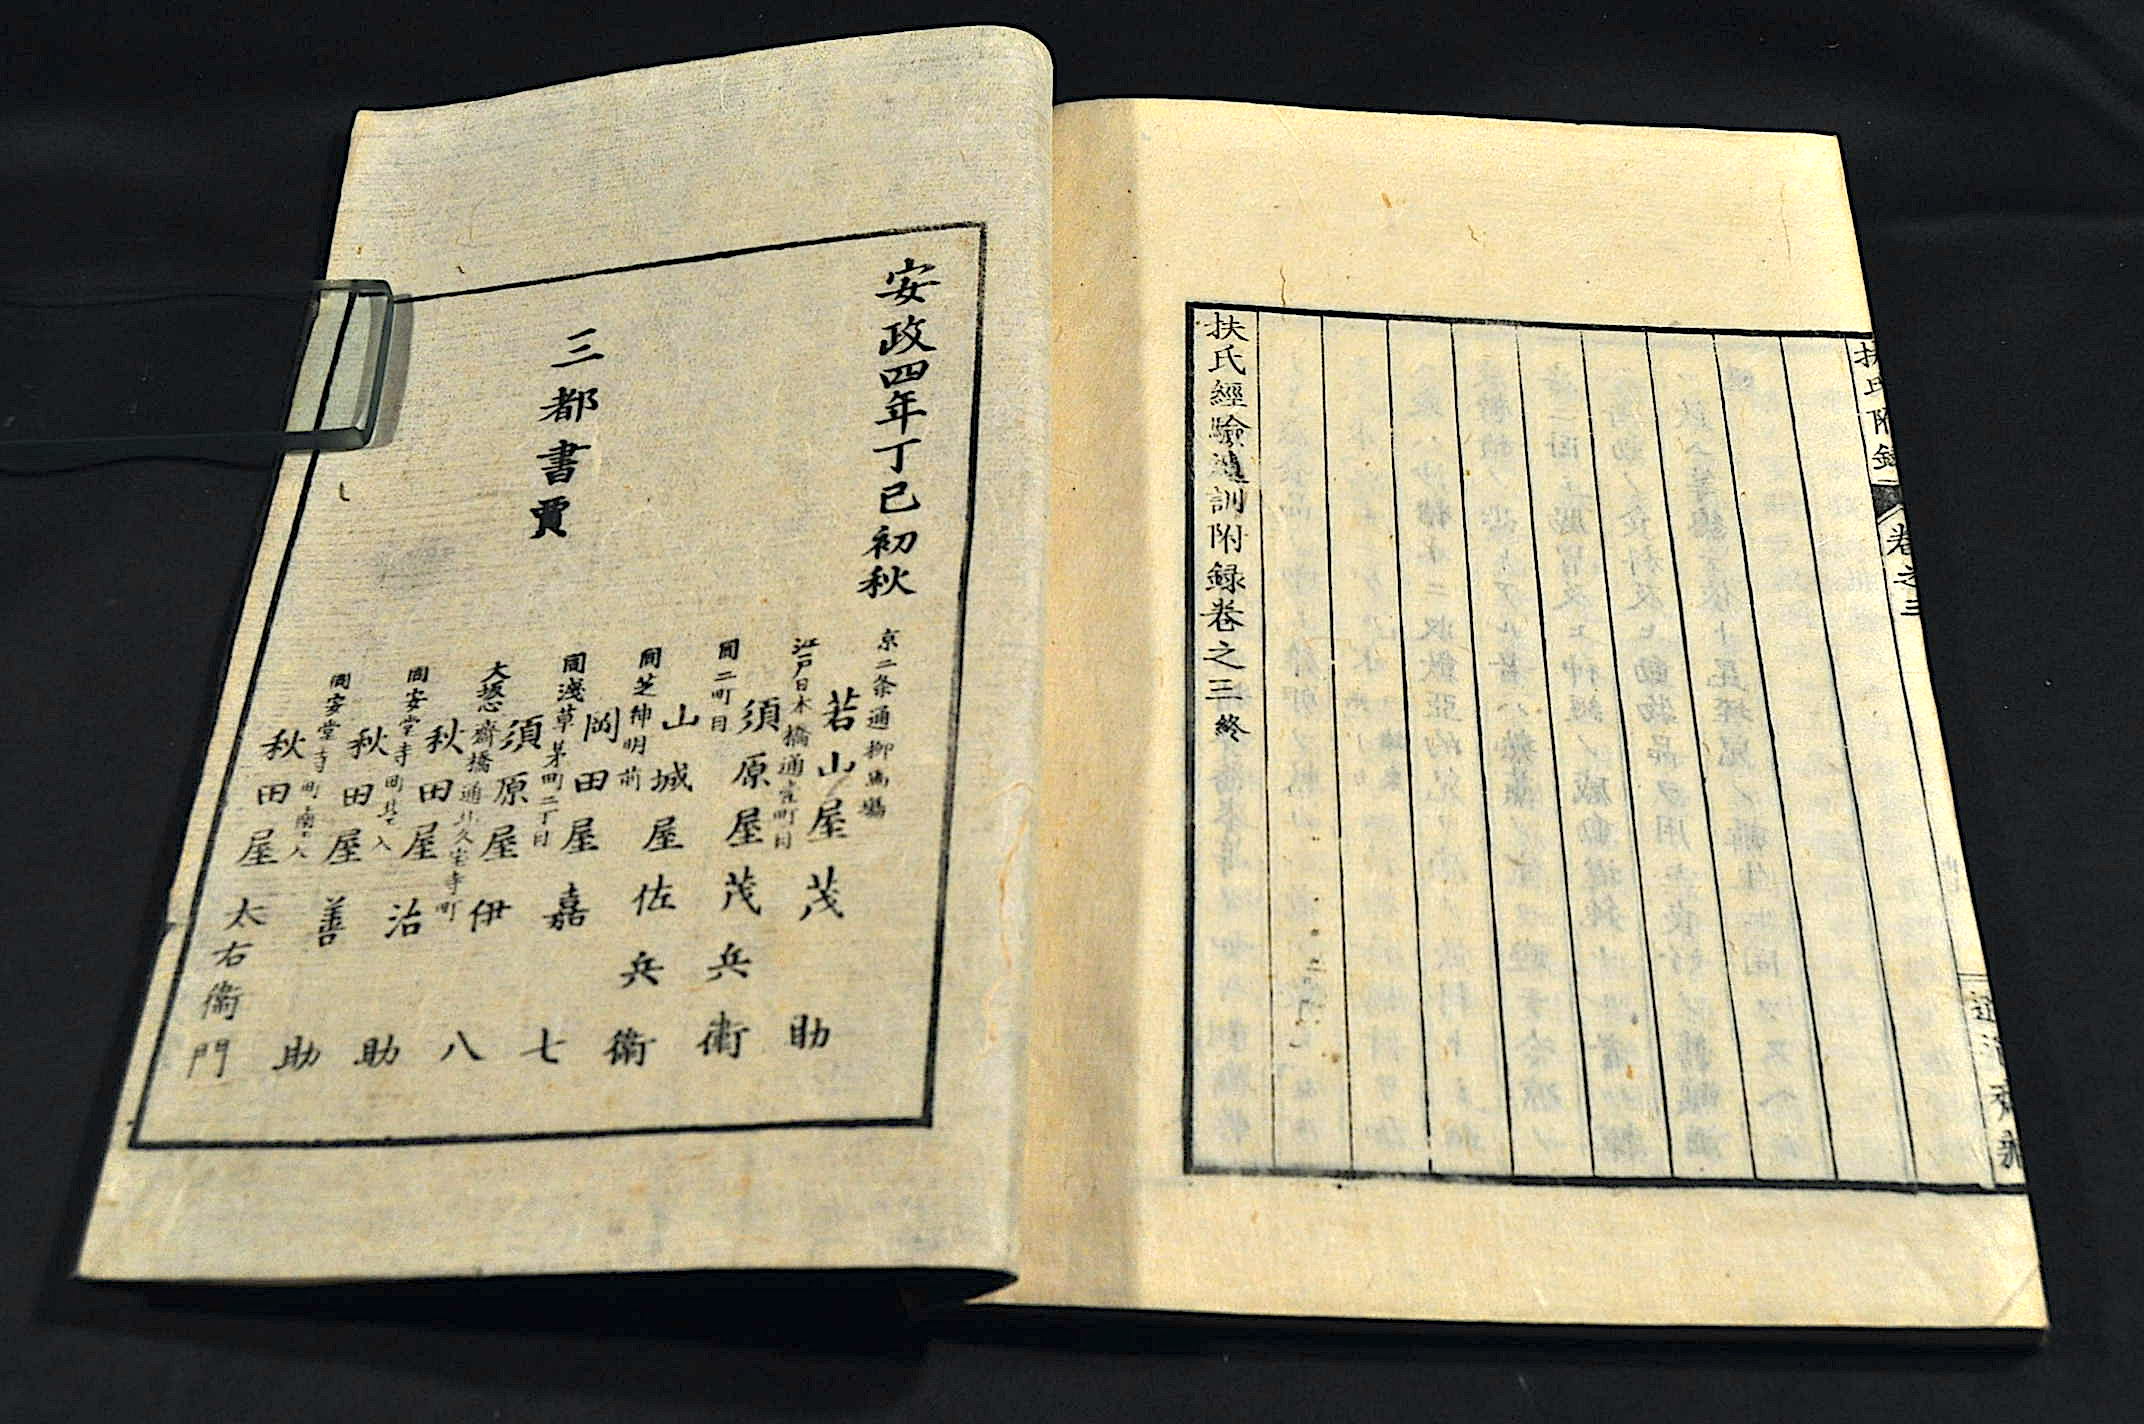 扶氏附録
卷之三
扶氏經驗遺訓附録卷之三終
安政四年丁巳初秋
三都書賈
京二条通柳馬場
若山屋茂助
江戸日本橋通壹町目
須原屋茂兵衛
同二町目
山城屋佐兵衛
同芝神明前
岡田屋嘉七
同淺草茅町二丁目
須原屋伊八
大坂心齋橋通北久宝寺町
秋田屋治助
同安堂寺町北ヘ入
秋田屋善助
同安堂寺町南ヘ入
秋田屋太右衛門